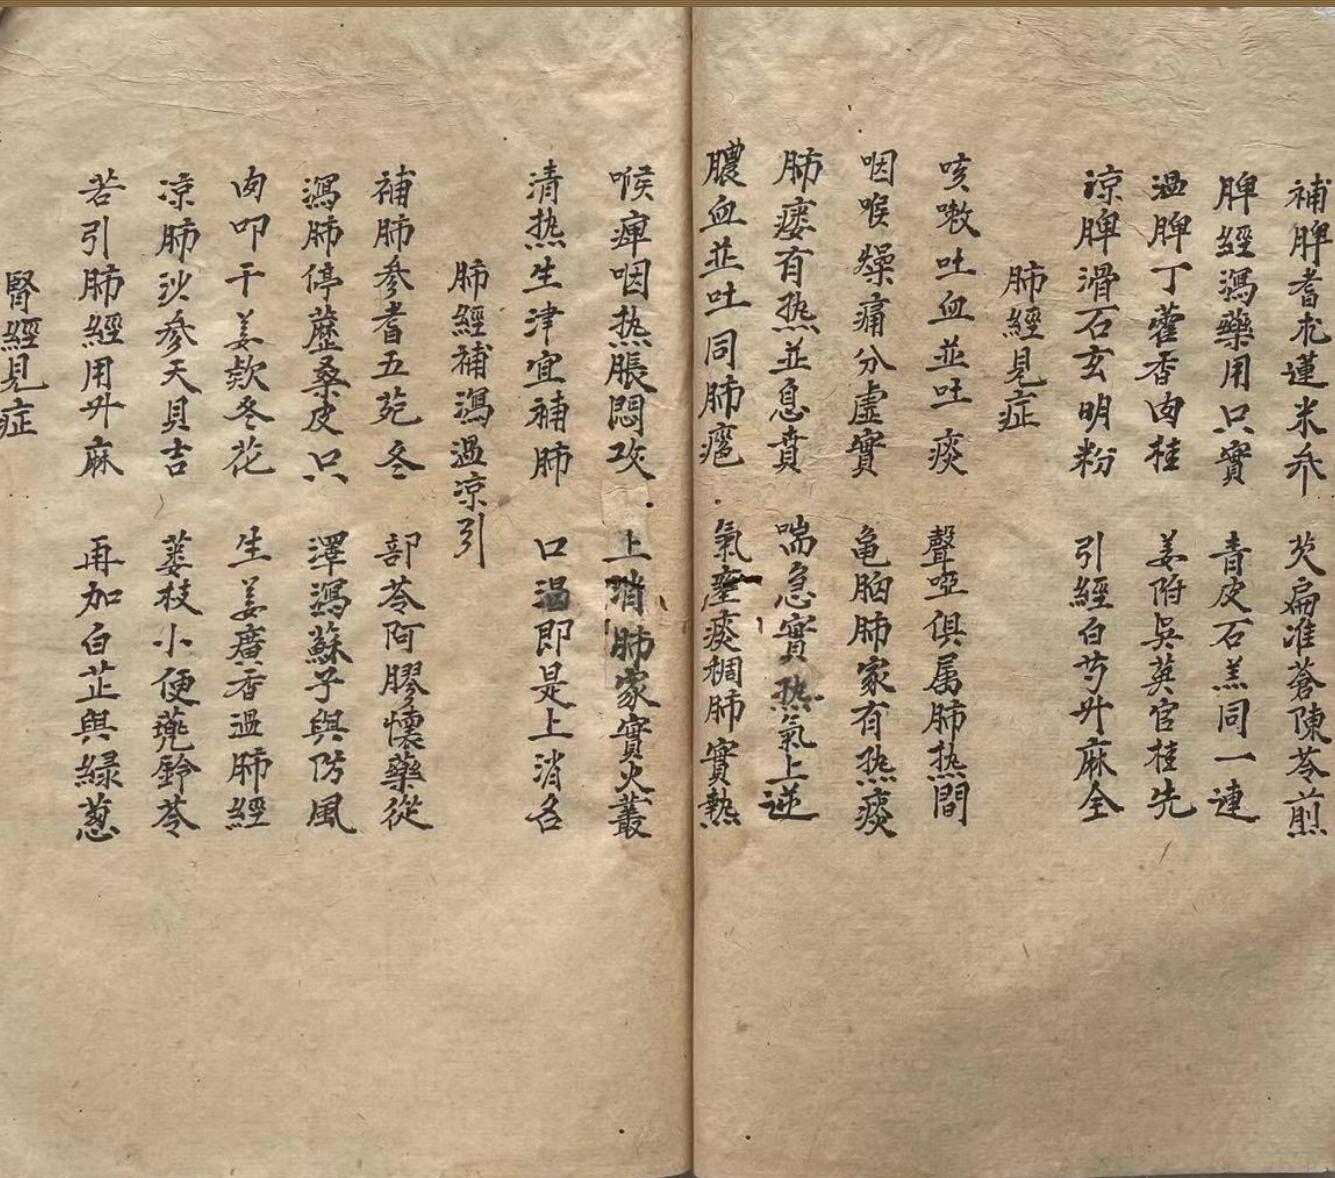 補脾耆朮蓮米朮 芡扁淮蒼陳苓煎
脾經瀉藥用只實 青皮石羔同一連
温脾丁藿香肉桂 姜附吳萸官桂先
凉脾滑石玄明粉 引經白芍升麻全
肺經見症
咳嗽吐血並吐痰 聲啞俱属肺热間
咽喉燥痛分虛實 龟胸肺家有热痰
肺痿有热並息賁 喘急實热氣上逆
膿血並吐同肺癰 氣壅痰稠肺實熱
喉痺咽热脹悶攻 上消肺家實火叢
清热生津宜補肺 口渴即是上消名
肺經補瀉温凉引
補肺參耆五苑冬 部苓阿膠懷藥從
瀉肺停藶桑皮只 澤瀉蘇子與防風
肉叩干姜欵冬花 生姜廣香温肺經
凉肺沙參天貝吉 蒌枝小便兠鈴苓
若引肺經用升麻 再加白芷與緑葱
腎經見症